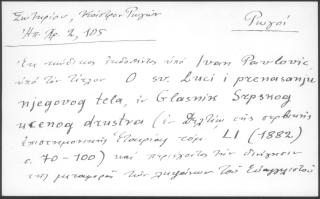 Σωτηρίου, Κάστρον Ρωγῶν
Ἠπ. Χρ. 2, 105
Ρωγοί
Ἐκ κώδικος ἐκδοθέντος ὑπό Ivan Pavlovic,
ὑπό τόν τίτλον O sv. Luci i prenasanju
njegovog tela, ἐν Glasnik Srpskog
ucenog drustva (ἐν Δελτίῳ τῆς σερβικῆς
ἐπιστημονικῆς Ἑταιρίας τόμ. LI (1882)
σ. 70-100) καί περιέχοντος τήν διήγησιν
τῆς μεταφορᾶς τῶν λειψάνων τοῦ Εὐαγγελιστοῦ